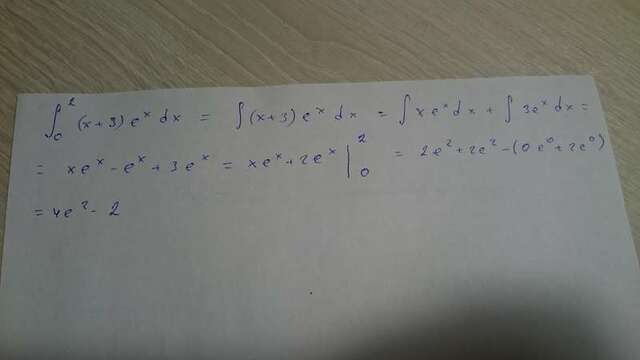 ∫₀² (x+3) eˣ dx = ∫ (x+3) eˣ dx = ∫ x eˣ dx + ∫ 3eˣ dx =
= xeˣ - eˣ + 3eˣ = xeˣ + 2eˣ |₀² = 2e² + 2e² - (0e⁰ + 2e⁰)
= 4e² - 2